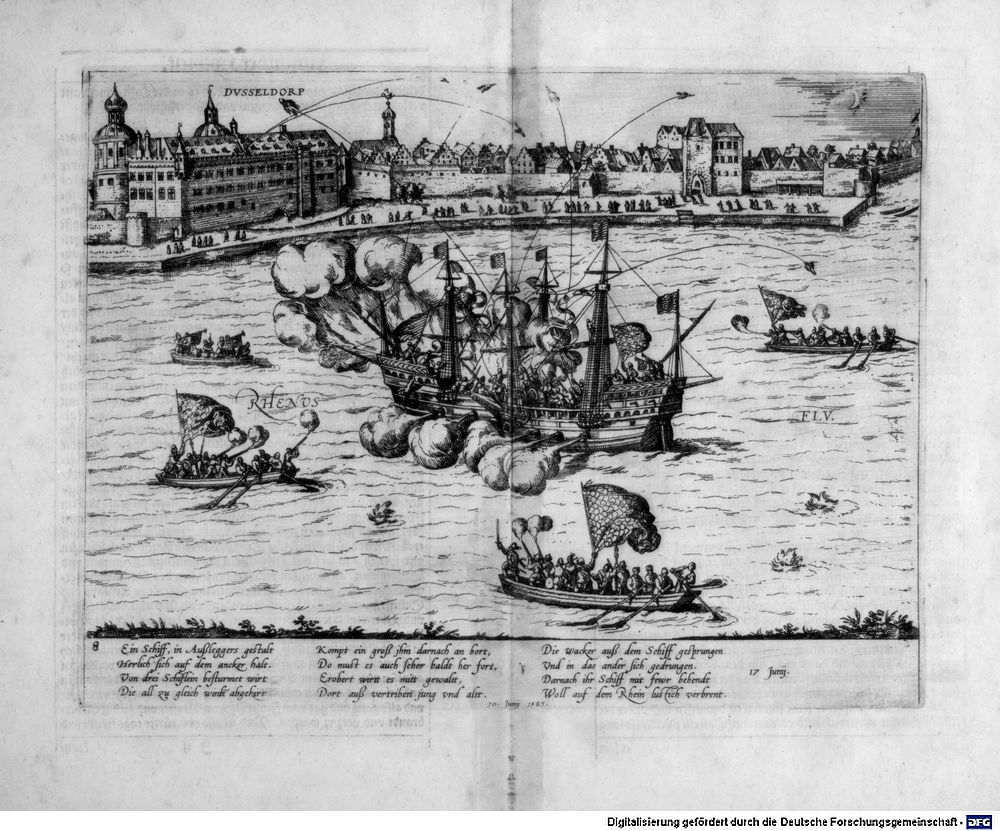 DVSSELDORP
RHENVS
FLV.
8
Ein Schiff, in Außleggers gestalt
Herlich sich auf dem ancker halt.
Von drei Schiflein besturmet wirt
Die all zu gleich werdē abgekert
Kompt ein groß jhm darnach an bort,
Do must es auch seher baldt her fort,
Erobert wirtt es mitt gewalt,
Dort auß vertriben jung vnd alt.
Die wacker auß dem Schiff gesprungen
Vnd in das ander sich gedrungen.
Darnach ihr Schiff mit fewr behendt
Woll auf dem Rhein lustich verbrent.
17 Junij.
10. Junij 1585.
Digitalisierung gefördert durch die Deutsche Forschungsgemeinschaft - DFG